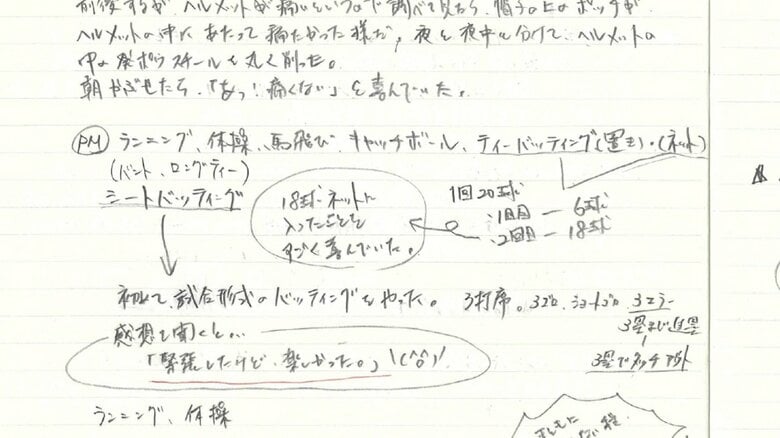 ヘルメットの中にあたって痛たかった様だ，夜と夜中に分けて、ヘルメットの
中の発ポウスチールを丸く削った。
朝かぶせたら、「あっ！痛くない」と喜んでいた。
PM ランニング、体操、馬飛び、キャッチボール、ティーバッティング(置き)・(ネット)
(バント、ロングティー)
シートバッティング
18球ネットに
入ったことを
すごく喜んでいた。
1回20球
1回目 — 6球
2回目 — 18球
初めて、試合形式のバッティングをやった。 3打席。3ゴロ、ショートゴロ 3エラー
3塁でタッチアウト
感想を聞くと…
「緊張したけど、楽しかった。」\(^o^)/
ランニング、体操